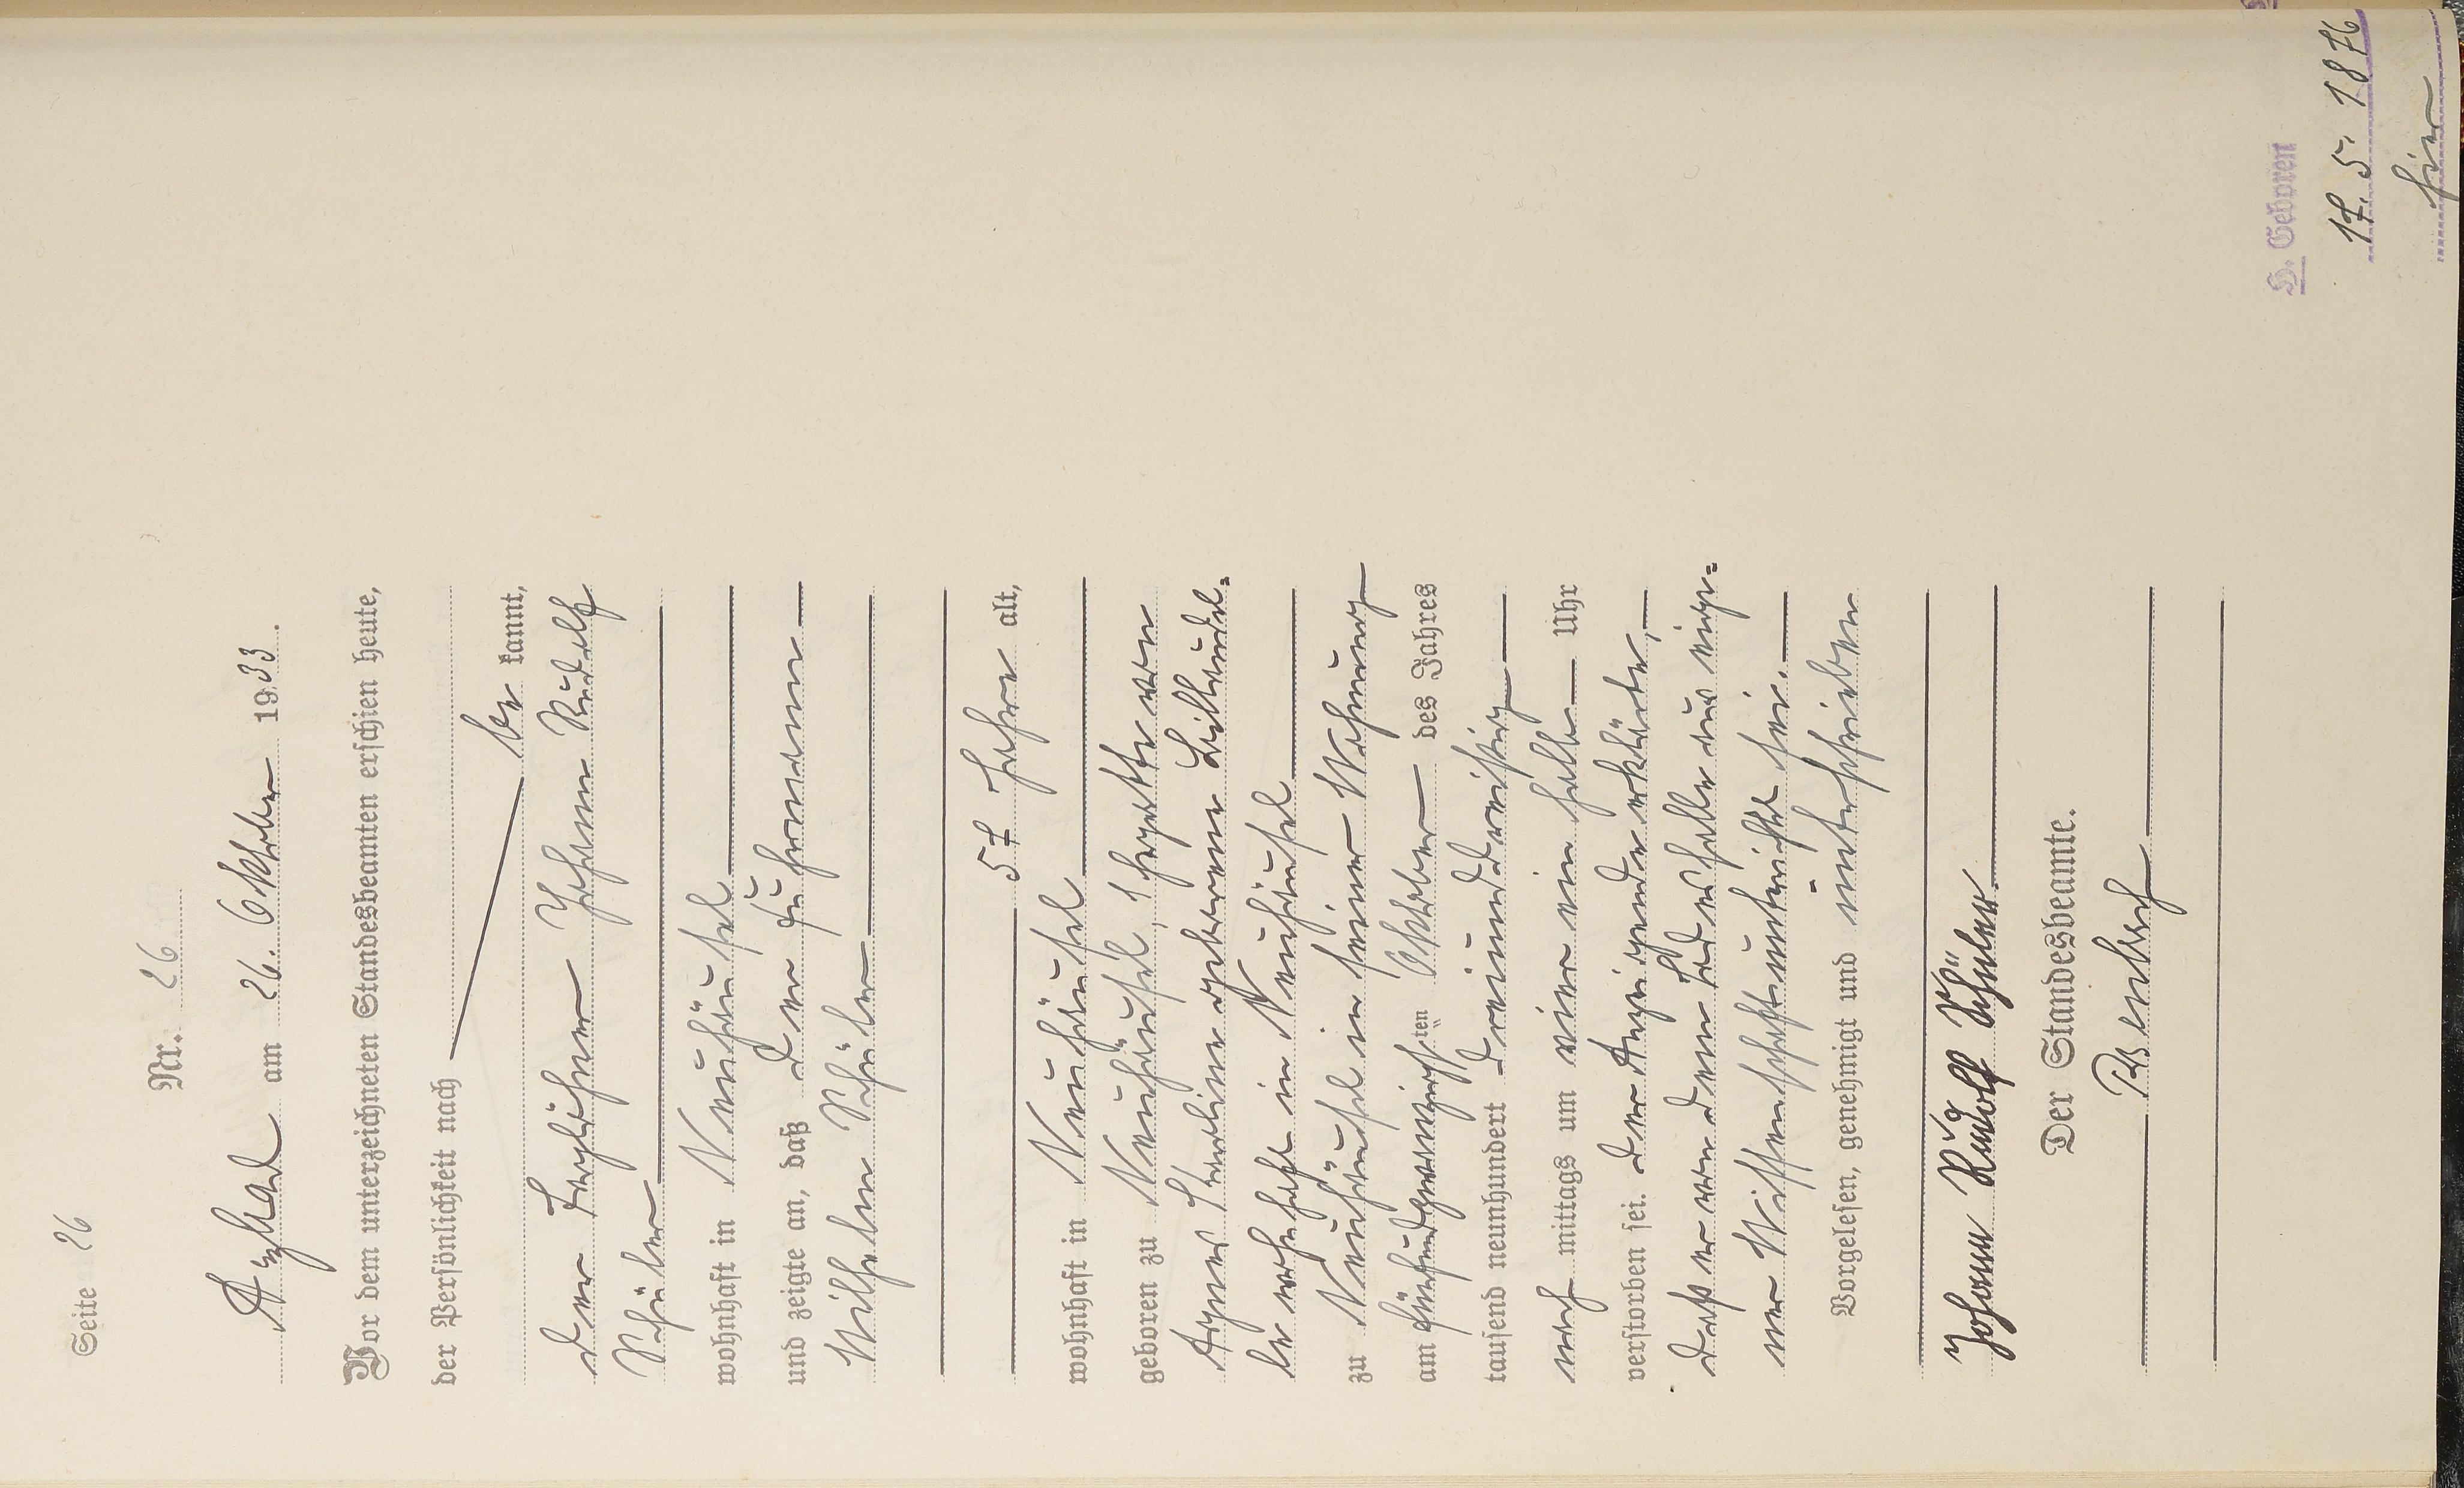 Seite 26
Nr. 26
am 26. Oktober 1933.
Vor dem unterzeichneten Standesbeamten erschien heute,
der Persönlichkeit nach
be kannt,
der Taglöhner Johann Rudolf
Schüler
wohnhaft in Neuhäusel
und zeigte an, daß der Fuhrmann
Wilhelm Schüler
57 Jahre alt,
wohnhaft in Neuhäusel
geboren zu Neuhäusel, Ehegatte von
Agnes Karoline geborene
wohnhaft in Neuhäusel
zu Neuhäusel in seiner Wohnung
am fünfundzwanzigsten Oktober des Jahres
tausend neunhundert dreiunddreißig
nach mittags um vier ein halb Uhr
verstorben sei. Der Anzeigende erklärte,
daß er von dem Todesfalle aus eige=
ner Wissenschaft unterrichtet sei.
Vorgelesen, genehmigt und unterschrieben
Johann Rudolf Schüler
Der Standesbeamte.
H. Geboren
17. 5. 1876
hier